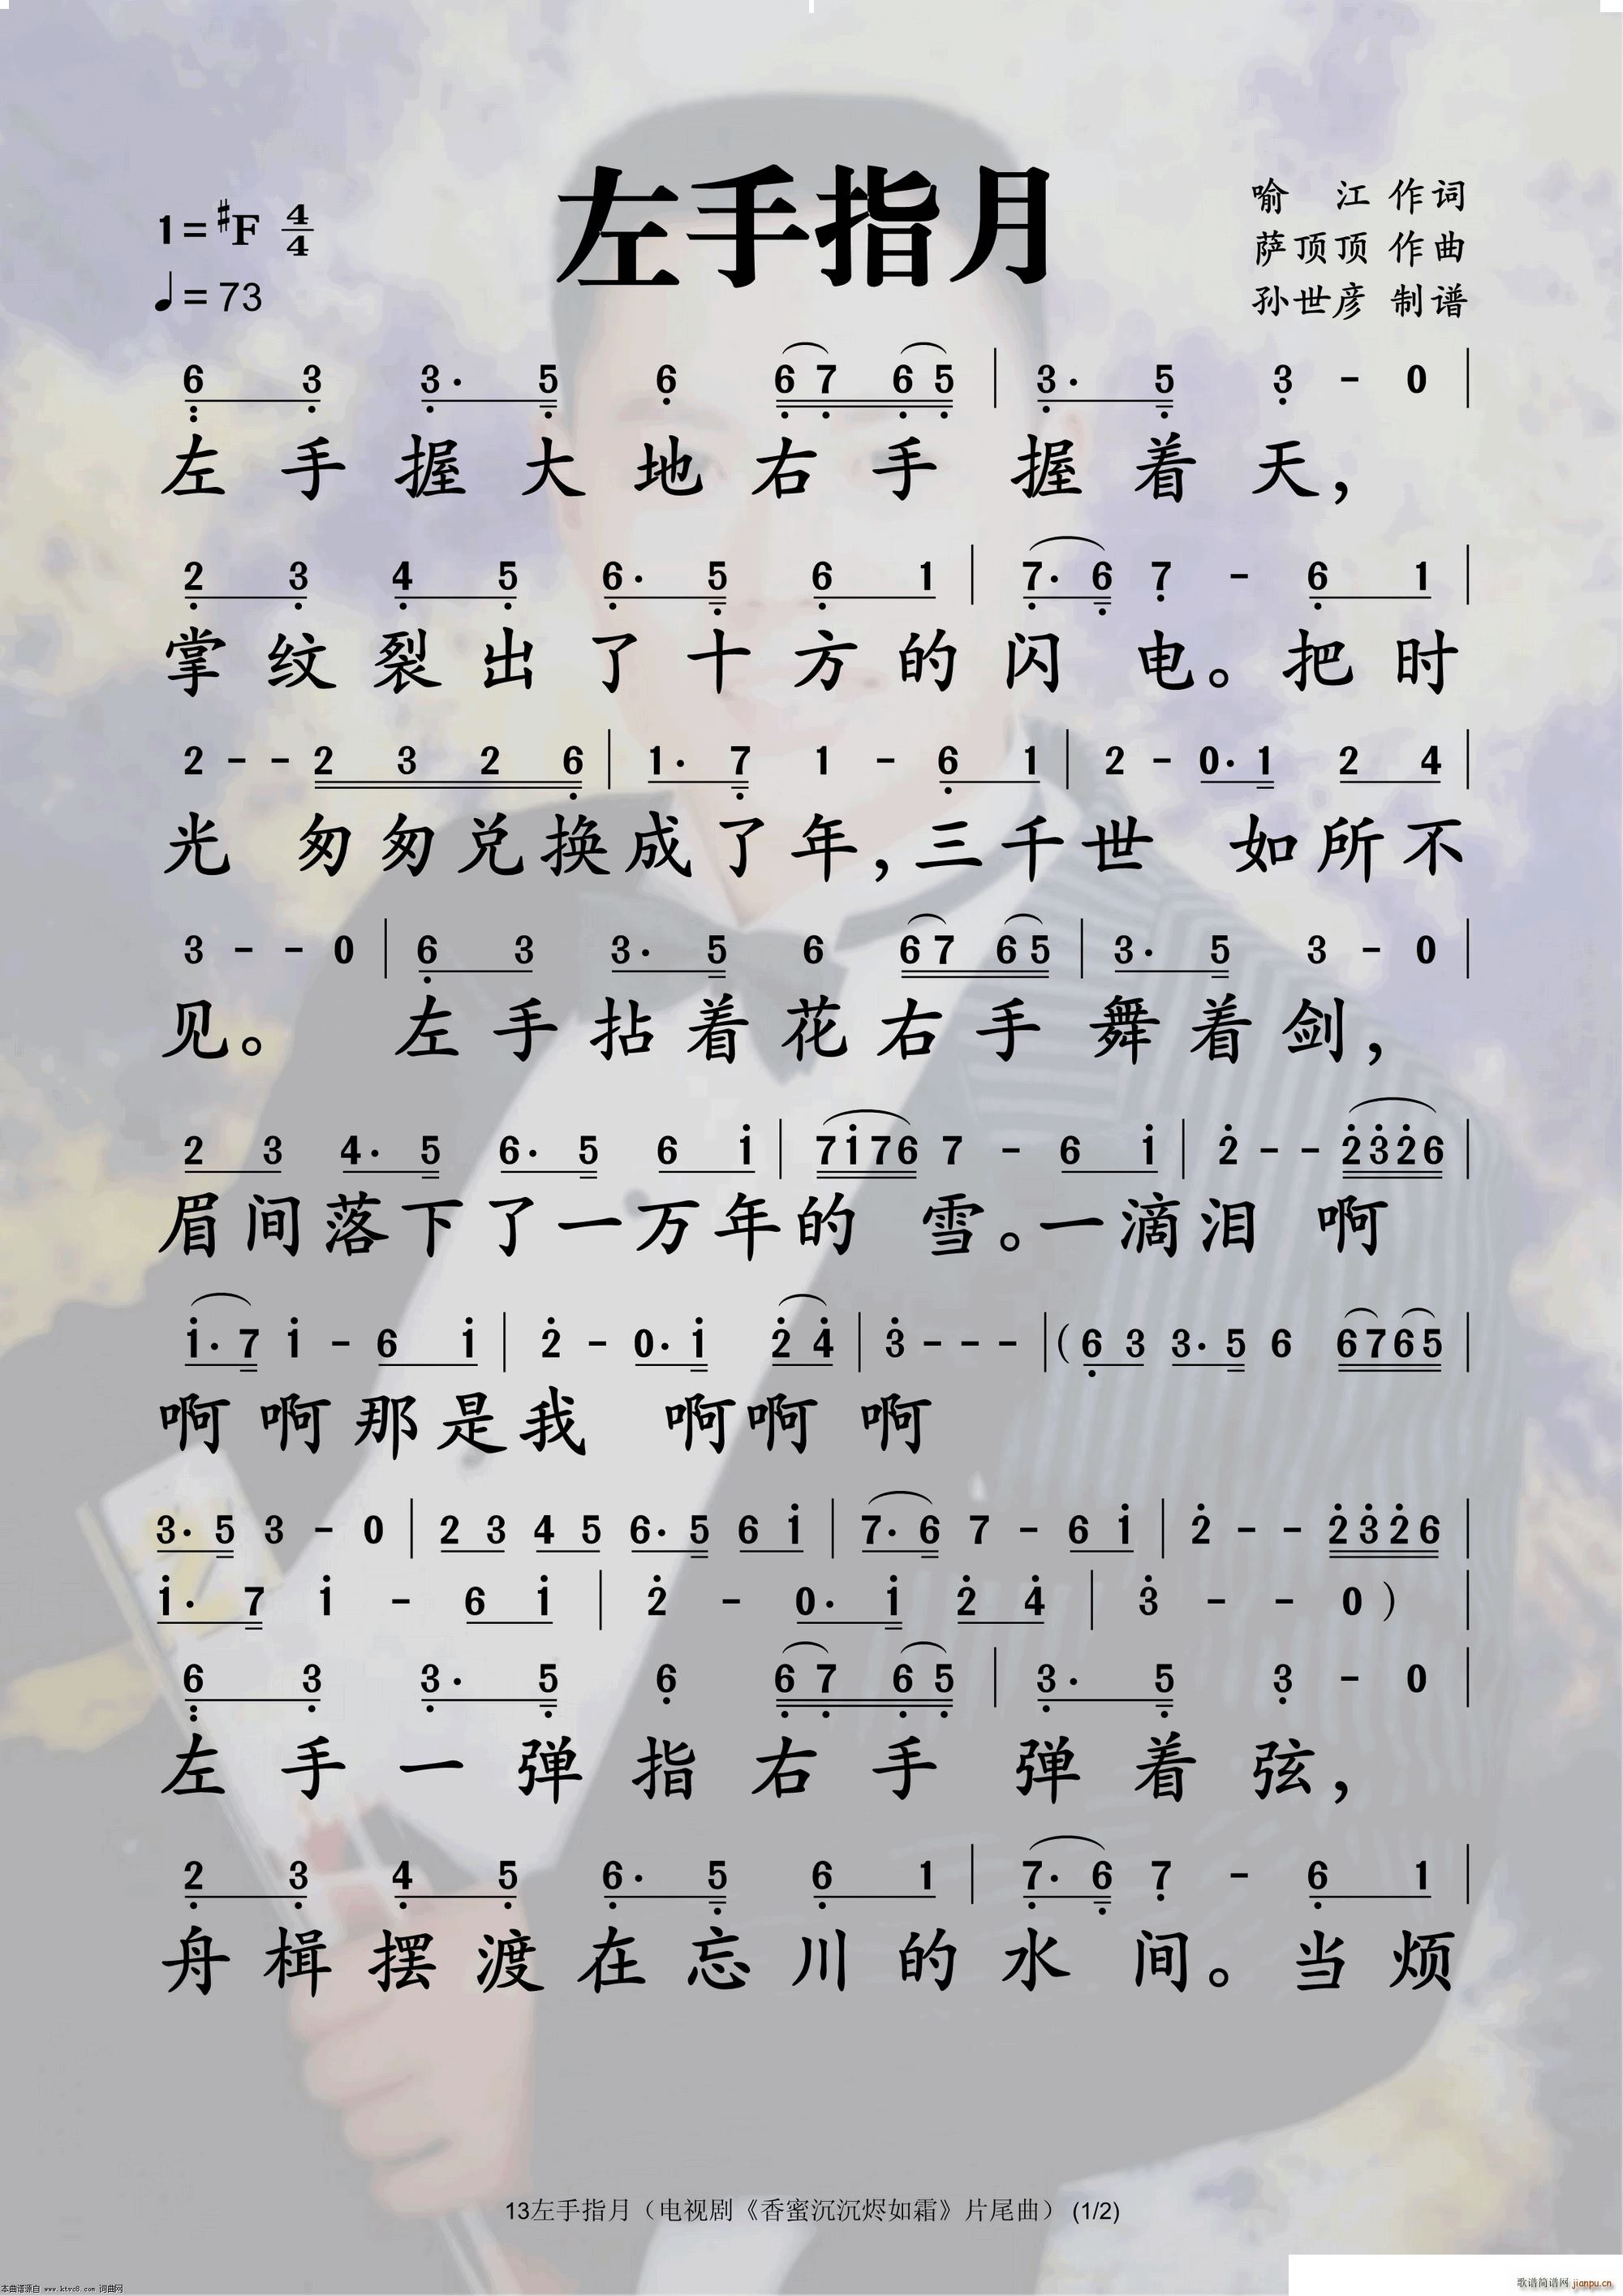 左手指月
1=♯F 4/4
♩=73
喻 江 作词
萨顶顶 作曲
孙世彦 制谱
6 3 3· 5 6 6 7 6 5 | 3· 5 3 - 0 |
左手握大地右手握着天，
2 3 4 5 6· 5 6 1 | 7· 6 7 - 6 1 |
掌纹裂出了十方的闪电。把时
2 - - 2 3 2 6 | 1· 7 1 - 6 1 | 2 - 0· 1 2 4 |
光 匆匆兑换成了年，三千世 如所不
3 - - 0 | 6 3 3· 5 6 6 7 6 5 | 3· 5 3 - 0 |
见。 左手拈着花右手舞着剑，
2 3 4· 5 6· 5 6 i | 7 i 7 6 7 - 6 i | 2̇ - - 2̇ 3̇ 2̇ 6 |
眉间落下了一万年的 雪。一滴泪 啊
i· 7 i - 6 i | 2̇ - 0· i 2̇ 4̇ | 3̇ - - - | (6 3 3· 5 6 6 7 6 5 |
啊啊那是我 啊啊啊
3· 5 3 - 0 | 2 3 4 5 6· 5 6 i | 7· 6 7 - 6 i | 2̇ - - 2̇ 3̇ 2̇ 6 |
i· 7 i - 6 i | 2̇ - 0· i 2̇ 4̇ | 3̇ - - 0 ) |
6 3 3· 5 6 6 7 6 5 | 3· 5 3 - 0 |
左手一弹指右手弹着弦，
2 3 4 5 6· 5 6 1 | 7· 6 7 - 6 1 |
舟楫摆渡在忘川的水间。当烦
13左手指月（电视剧《香蜜沉沉烬如霜》片尾曲） (1/2)
本曲谱源自 www.ktvc8.com 词曲网
歌谱简谱网 jianpu.cn